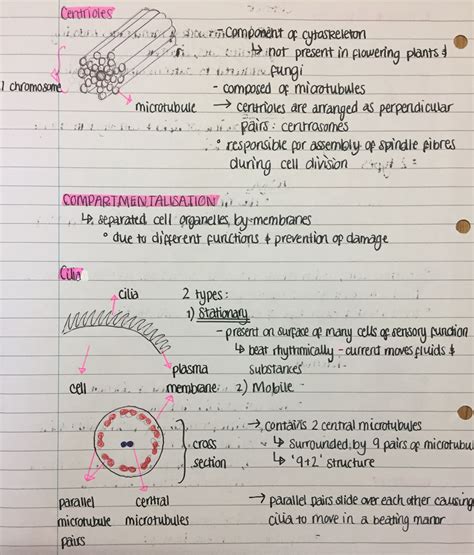 Centrioles
- Component of cytoskeleton
↳ not present in flowering plants &
fungi
1 chromosome
- composed of microtubules
microtubule
→ centrioles are arranged as perpendicular
pairs: centrosomes
° responsible for assembly of spindle fibres
during cell division
COMPARTMENTALISATION
↳ separated cell organelles by membranes
° due to different functions & prevention of damage
Cilia
cilia
2 types:
1) Stationary
- present on surface of many cells of sensory function
↳ beat rhythmically - current moves fluids &
substances
plasma
membrane
cell
2) Mobile
→ contains 2 central microtubules
↳ surrounded by 9 pairs of microtubu
↳ '9+2' structure
cross
section
parallel
microtubule
pairs
central
microtubules
→ parallel pairs slide over each other causing
cilia to move in a beating manor